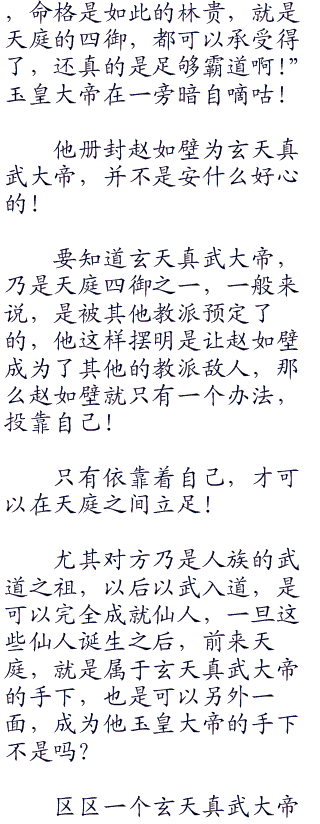 ，命格是如此的林贵，就是
天庭的四御，都可以承受得
了，还真的是足够霸道啊！”
玉皇大帝在一旁暗自嘀咕！
他册封赵如壁为玄天真
武大帝，并不是安什么好心
的！
要知道玄天真武大帝，
乃是天庭四御之一，一般来
说，是被其他教派预定了
的，他这样摆明是让赵如壁
成为了其他的教派敌人，那
么赵如壁就只有一个办法，
投靠自己！
只有依靠着自己，才可
以在天庭之间立足！
尤其对方乃是人族的武
道之祖，以后以武入道，是
可以完全成就仙人，一旦这
些仙人诞生之后，前来天
庭，就是属于玄天真武大帝
的手下，也是可以另外一
面，成为他玉皇大帝的手下
不是吗？
区区一个玄天真武大帝